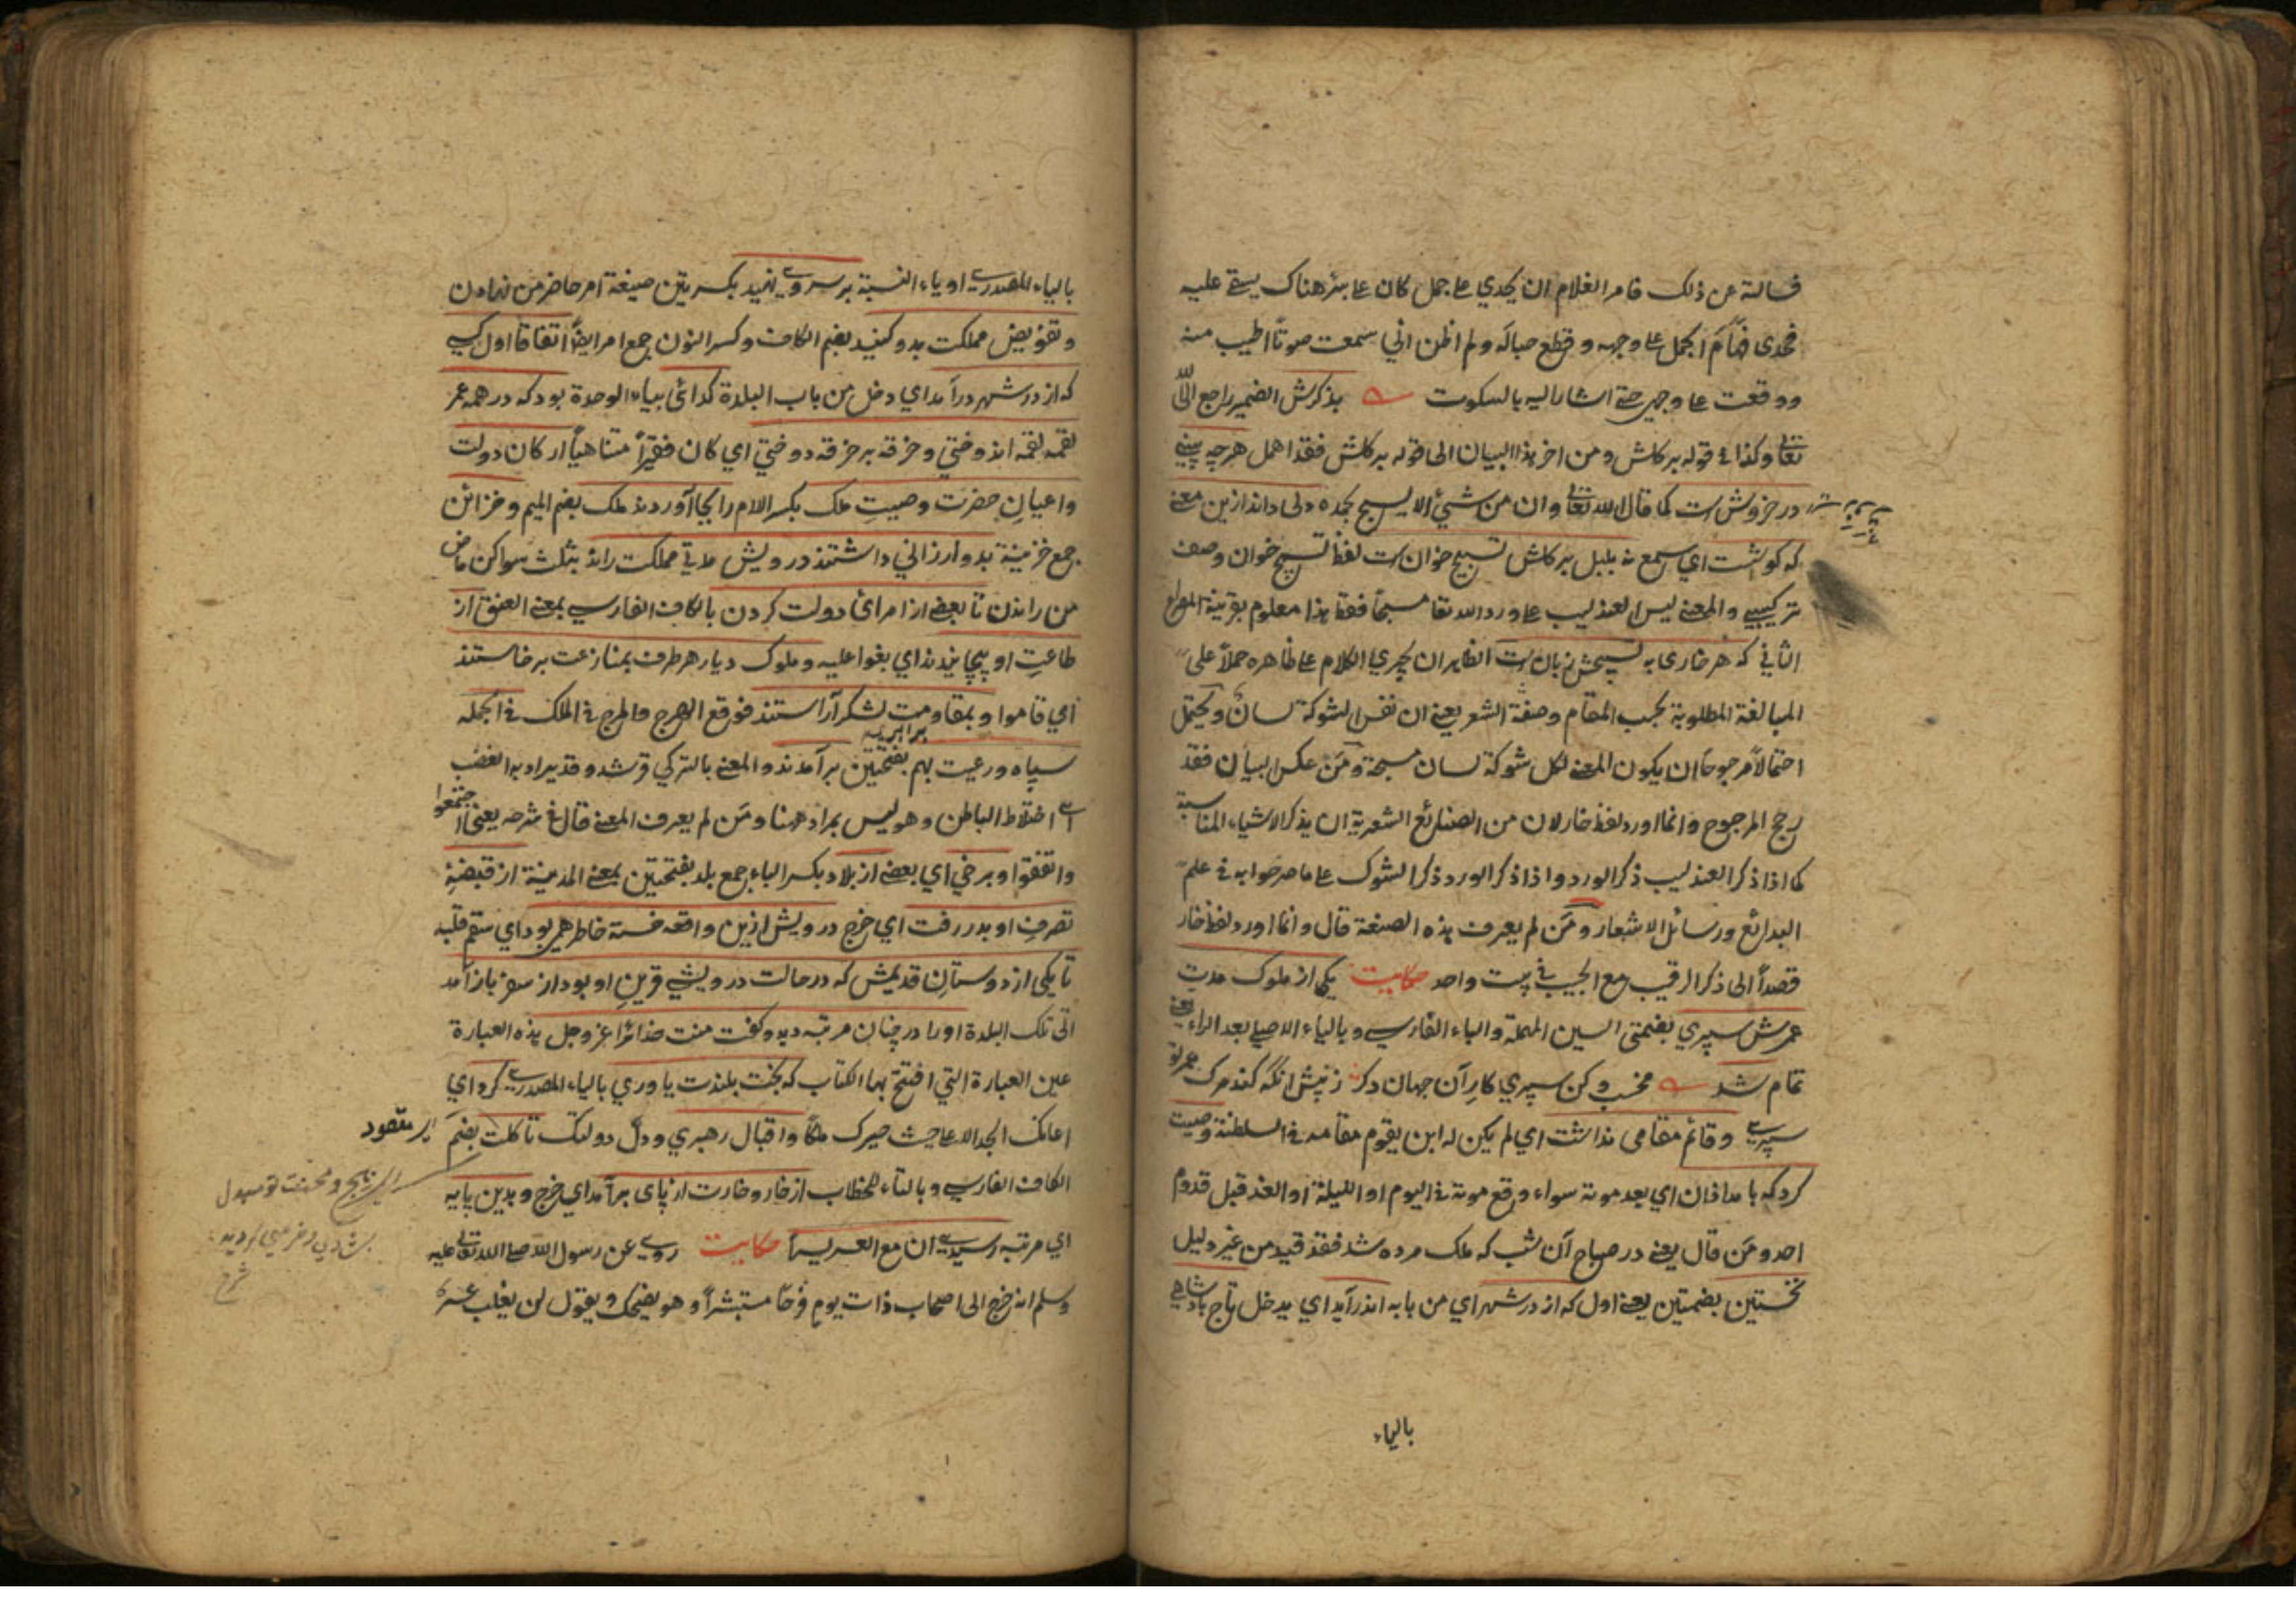 فسالته عن ذلك فامر الغلام ان يحدي على جمل كان على بئر هناك يستقى عليه
فحدى فهام الجمل على وجهه وقطع حباله ولم اظن اني سمعت صوتا اطيب منه
ووقعت على وجهي حتى اشار اليه بالسكوت بذكرش الضمير راجع الى الله
تعالى وكذا في قوله بر كلش ومن اخر هذا البيان الى قوله بر كلش فقد اهمل هرچه بيني
در خروش است كما قال الله تعالى وان من شيئ الا يسبح بحمده دلى داند ازين معنى
كه كوشست اي سمع نه بلبل بر كلش تسبيح خوان است لفظ تسبيح خوان وصف
تركيبي والمعنى ليس العندليب على ورد الله تعا مسبحا فقط هذا معلوم بقرينة المصراع
الثاني كه هر خارى به تسبيحش زبان است الظاهر ان يجري الكلام على ظاهره حملا على
المبالغة المطلوبة بحسب المقام وصنعة الشعر يعنى ان نفس الشوكة لسان ويحتمل
احتمالا مرجوحا ان يكون المعنى لكل شوكة لسان مسبحة ومن عكس البيان فقد
رجح المرجوح وانما اورد لفظ خار لان من الصنائع الشعرية ان يذكر الاشياء المناسبة
كما اذا ذكر العندليب ذكر الورد واذا ذكر الورد ذكر الشوك على ما صرحوا به في علم
البدائع ورسائل الاشعار ومن لم يعرف هذه الصنعة قال وانما اورد لفظ خار
قصدا الى ذكر الرقيب مع الحبيب في بيت واحد حكايت يكى از ملوك مدت
عمرش سپري بضمتى السين المهملة والباء الفارسي وبالياء الاصلى بعد الراء يعنى
تمام شد مخسب وكن سپري كار آن جهان دكر ز پيش انكه كند مرك عمر تو
سپرى وقائم مقامى نداشت اي لم يكن له ابن يقوم مقامه في السلطنة وصيت
كرد كه بامدادان اي بعد موته سواء وقع موته في اليوم او الليلة او الغد قبل قدوم
احد ومن قال يعنى در صباح آن شب كه ملك مرده شد فقد قيد من غير دليل
نخستين بضمتين يعنى اول كه از در شهر اي من بابه اندر آيد اي يدخل تاج پادشاهي
بالياء
بالياء المصدرى او ياء النسبة بر سر وى نهيد بكسرتين صيغة امر حاضر من نهادن
وتفويض مملكت بدو كنيد بضم الكاف وكسر النون جمع امر ايضا اتفاقا اول كسى
كه از در شهر درآمد اي دخل من باب البلدة كدائى بياء الوحدة بود كه در همه عمر
لقمه لقمه اندوختي وخرقه بر خرقه دوختي اي كان فقيرا متناهيا اركان دولت
واعيان حضرت وصيت ملك بكسر اللام را بجا آوردند ملك بضم الميم وخزائن
جمع خزينة بدو ارزاني داشتند درويش مدتي مملكت راند بثلث سواكن ماض
من راندن تا بعضى از امراى دولت كردن بالكاف الفارسي بمعنى العنق از
طاعت او بپيچانيدند اي بغوا عليه وملوك ديار هر طرف بمنازعت برخاستند
اي قاموا وبمقاومت برابريه لشكر آراستند فوقع الهرج والمرج في الملك في الجمله
سپاه ورعيت بهم بفتحتين برآمدند والمعنى بالتركي وقد يراد به الغضب
اى اختلاط الباطن وهو ليس بمراد ههنا ومن لم يعرف المعنى قال في شرحه يعنى اجتمعوا
واتفقوا وبرخي اي بعضى از بلاد بكسر الباء جمع بلد بفتحتين بمعنى المدينة از قبضهٔ
تصرف او بدر رفت اي خرج درويش ازين واقعه خسته خاطر همى بود اي سقم قلبه
تا يكى از دوستان قديمش كه در حالت درويشى قرين او بود از سفر باز آمد
اتى تلك البلدة او را در چنان مرتبه ديد وكفت منت خدائرا عز وجل هذه العبارة
عين العبارة التي افتتح بها الكتاب كه بخت بلندت ياوري بالياء المصدرى كرد اي
اعانك الجد الاعلى حيث صيرك ملكا واقبال رهبري ودل دولتك تا كلت بضم
الكاف الفارسي وبالتاء للخطاب از خار وخارت از پاى برآمد اي خرج وبدين پايه
اي مرتبه رسيدى ان مع العسر يسرا حكايت روى عن رسول الله صلى الله تعالى عليه
وسلم انه خرج الى اصحابه ذات يوم فرحا مستبشرا وهو يضحك ويقول لن يغلب عسر
اى مقصود